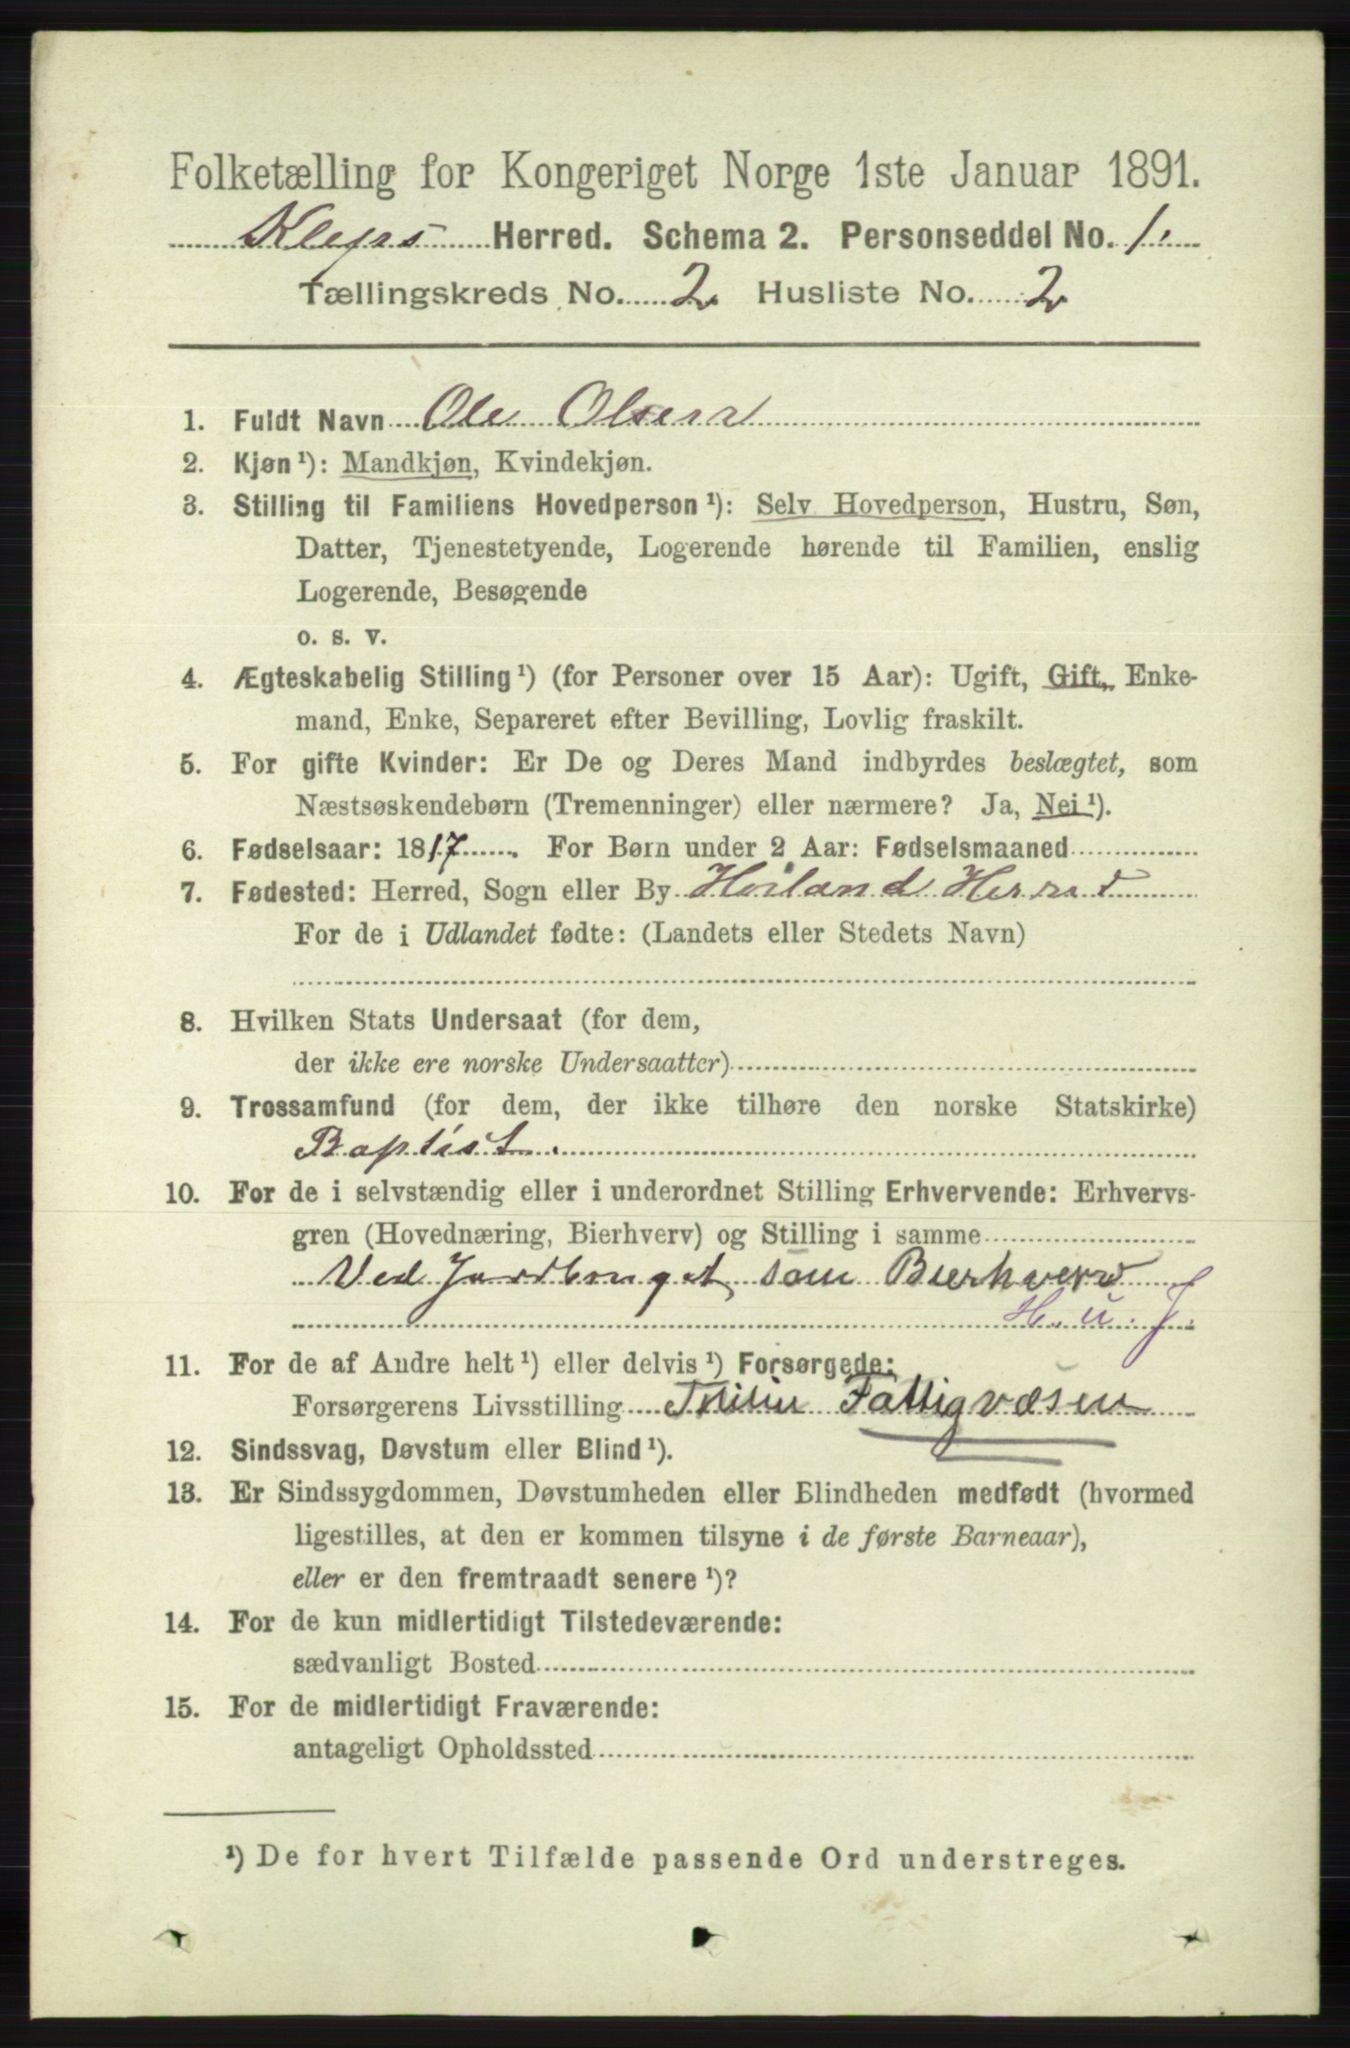 Folketælling for Kongeriget Norge 1ste Januar 1891.
Kleps Herred. Schema 2. Personseddel No. 1.
Tællingskreds No. 2. Husliste No. 2
1. Fuldt Navn Ole Olsen
2. Kjøn¹): Mandkjøn, Kvindekjøn.
3. Stilling til Familiens Hovedperson¹): Selv Hovedperson, Hustru, Søn,
Datter, Tjenestetyende, Logerende hørende til Familien, enslig
Logerende, Besøgende
o. s. v.
4. Ægteskabelig Stilling¹) (for Personer over 15 Aar): Ugift, Gift, Enke-
mand, Enke, Separeret efter Bevilling, Lovlig fraskilt.
5. For gifte Kvinder: Er De og Deres Mand indbyrdes beslægtet, som
Næstsøskendebørn (Tremenninger) eller nærmere? Ja, Nei¹).
6. Fødselsaar: 1817. For Børn under 2 Aar: Fødselsmaaned
7. Fødested: Herred, Sogn eller By Høiland Herred
For de i Udlandet fødte: (Landets eller Stedets Navn)
8. Hvilken Stats Undersaat (for dem,
der ikke ere norske Undersaatter)
9. Trossamfund (for dem, der ikke tilhøre den norske Statskirke)
Baptist.
10. For de i selvstændig eller i underordnet Stilling Erhvervende: Erhvervs-
gren (Hovednæring, Bierhverv) og Stilling i samme
Ved Jordbruget som Bierhverv
H. u. J.
11. For de af Andre helt¹) eller delvis¹) Forsørgede:
Forsørgerens Livsstilling Fattigvæsen
12. Sindssvag, Døvstum eller Blind¹).
13. Er Sindssygdommen, Døvstumheden eller Blindheden medfødt (hvormed
ligestilles, at den er kommen tilsyne i de første Barneaar),
eller er den fremtraadt senere¹)?
14. For de kun midlertidigt Tilstedeværende:
sædvanligt Bosted
15. For de midlertidigt Fraværende:
antageligt Opholdssted
¹) De for hvert Tilfælde passende Ord understreges.